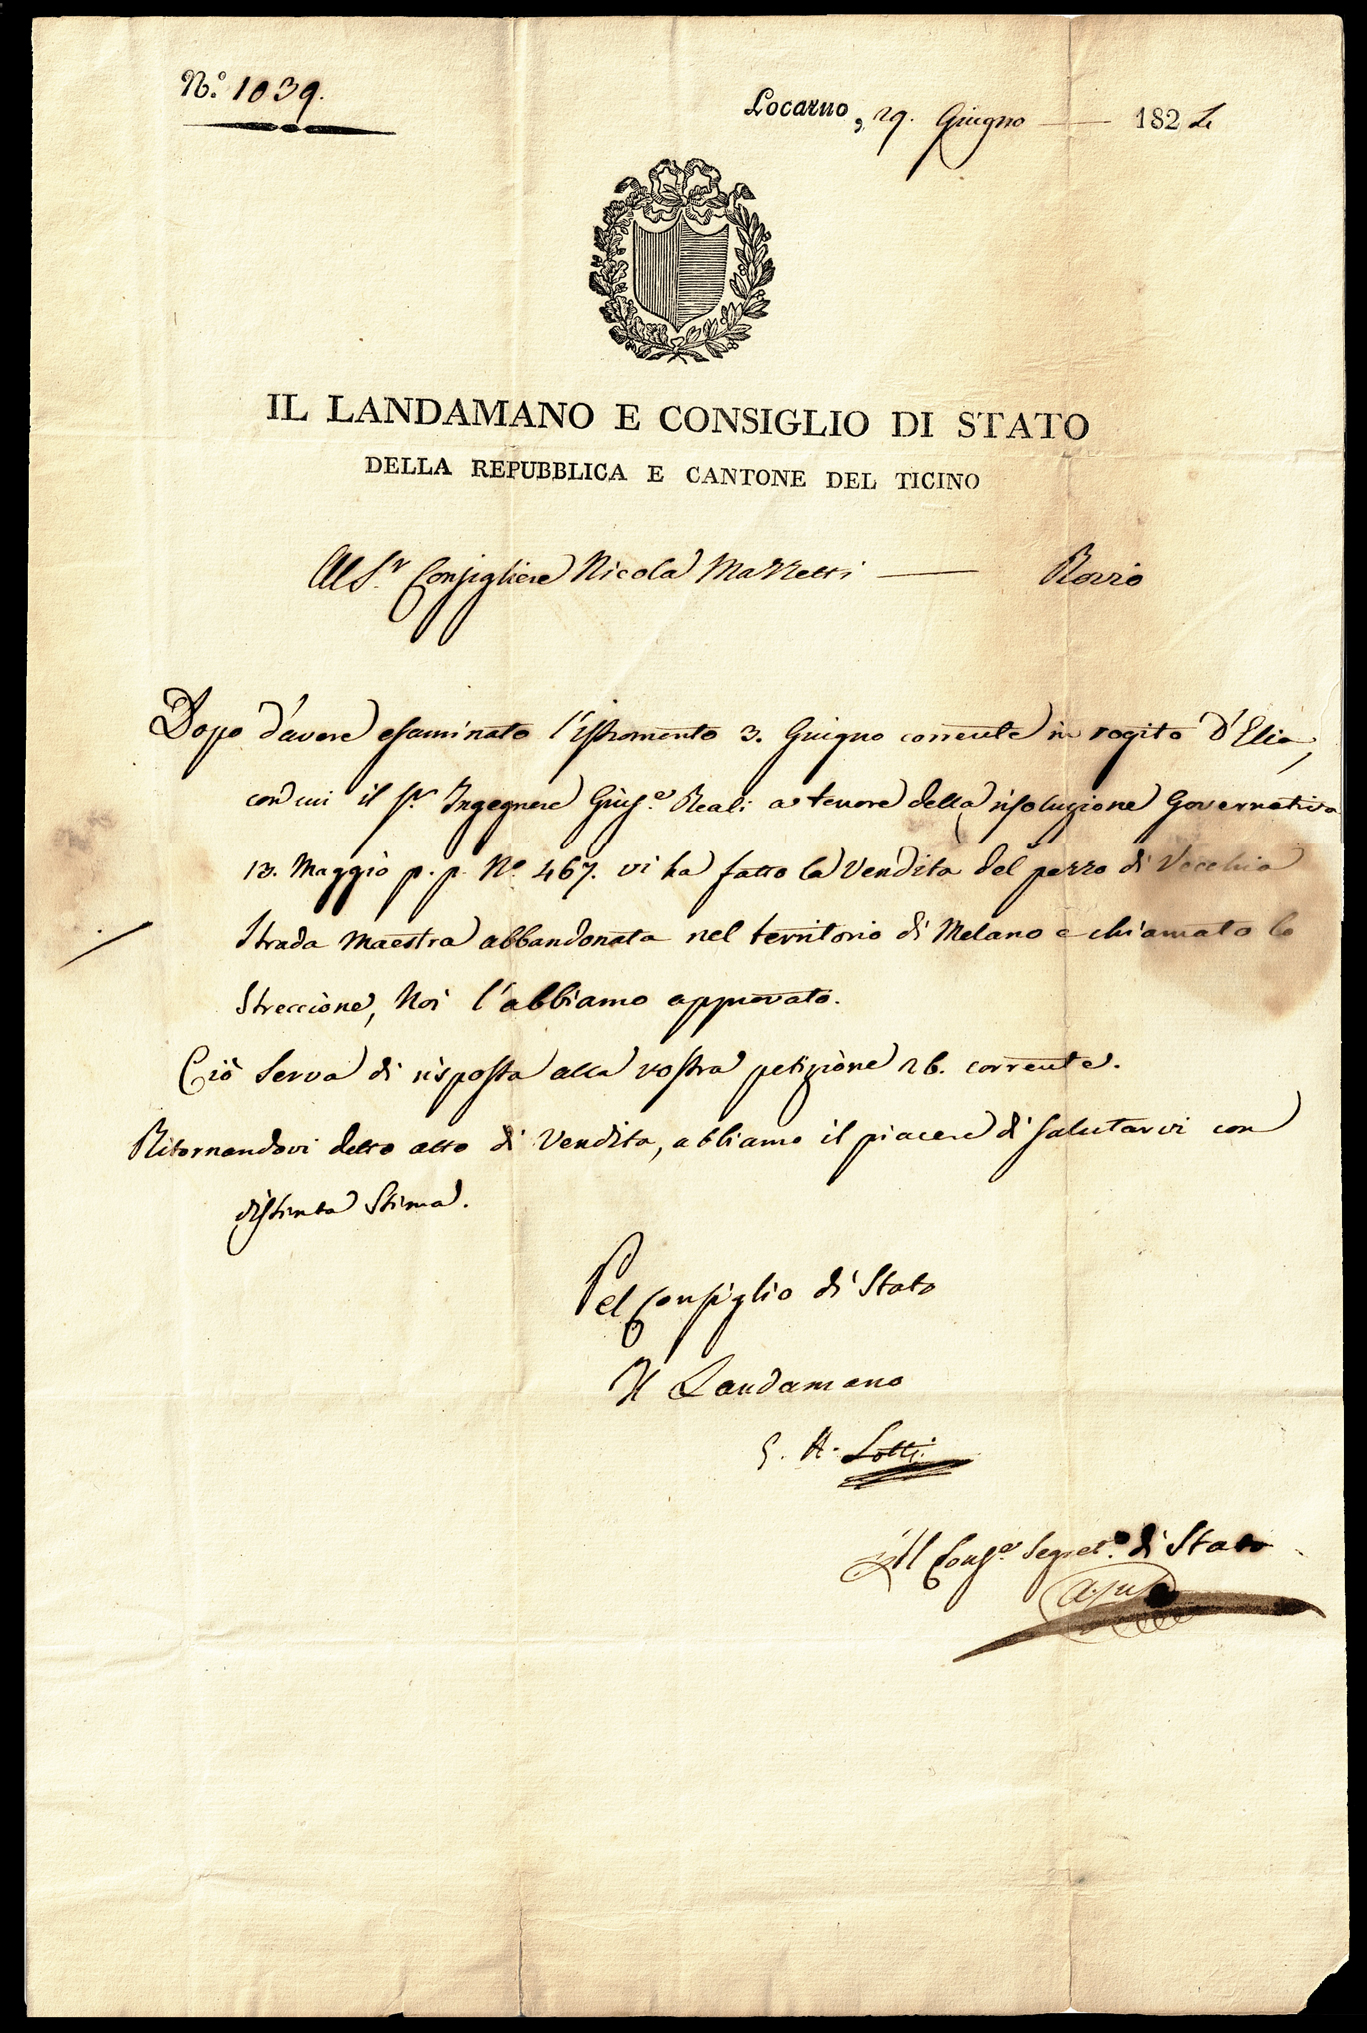 N.º 1039.
Locarno, 29. Giugno 182
IL LANDAMANO E CONSIGLIO DI STATO
DELLA REPUBBLICA E CANTONE DEL TICINO
Al S.r Consigliere Nicola Mazzetti — Rovio
Dopo d'avere esaminato l'istromento 3. Giugno corrente in rogito D'Elia,
con cui il S.r Ingegnere Gius.e Reali a tenore della risoluzione Governativa
13. Maggio p. p. N.º 467. vi ha fatto la Vendita del pezzo di Vecchia
Strada Maestra abbandonata nel territorio di Melano e chiamato lo
Streccione, Noi l'abbiamo approvato.
Ciò serva di risposta alla vostra petizione 26. corrente.
Ritornandovi detto atto di Vendita, abbiamo il piacere di salutarvi con
distinta Stima.
Pel Consiglio di Stato
Il Landamano
G. A. Lotti
Il Cons.e Segret.o di Stato